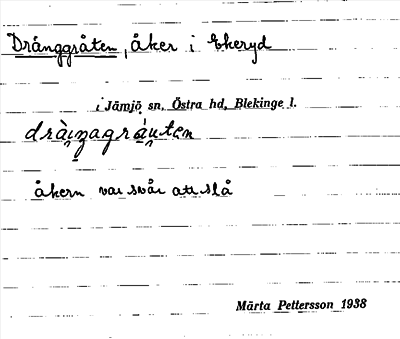 Drånggråten, åker i Ekeryd
i Jämjö sn, Östra hd, Blekinge l.
åkern var svår att slå
Märta Pettersson 1938